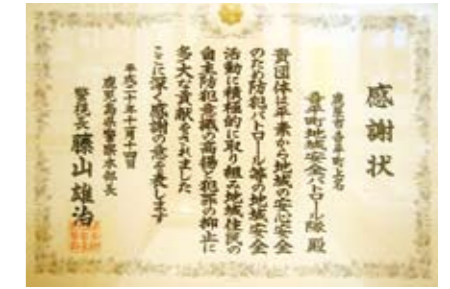 感謝状
鹿児島市喜入町上名
喜入町地域安全パトロール隊 殿
貴団体は平素から地域の安心安全
のため防犯パトロール等の地域安全
活動に積極的に取り組み地域住民の
自主防犯意識の高揚と犯罪の抑止に
多大な貢献をされました
ここに深く感謝の意を表します
平成二十年十月十四日
鹿児島県警察本部長
警視長 藤山雄治